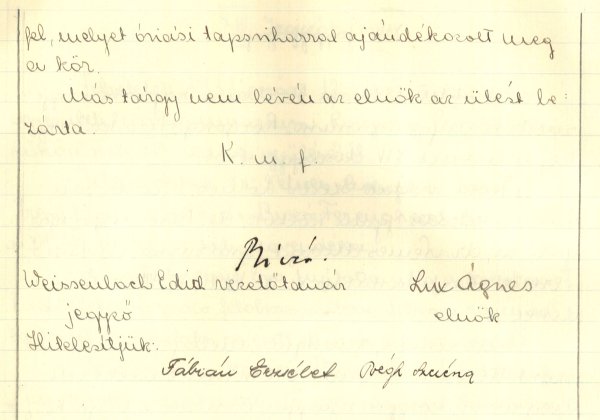 fel, melyet óriási tapsviharral ajándékozott meg
a kör.
Más tárgy nem lévén az elnök az ülést be=
zárta.
K. m. f.
Weissenbach Edid vezetőtanár Lux Ágnes
jegyző elnök
Hitelesítjük:
Fábián Erzsébet Végh